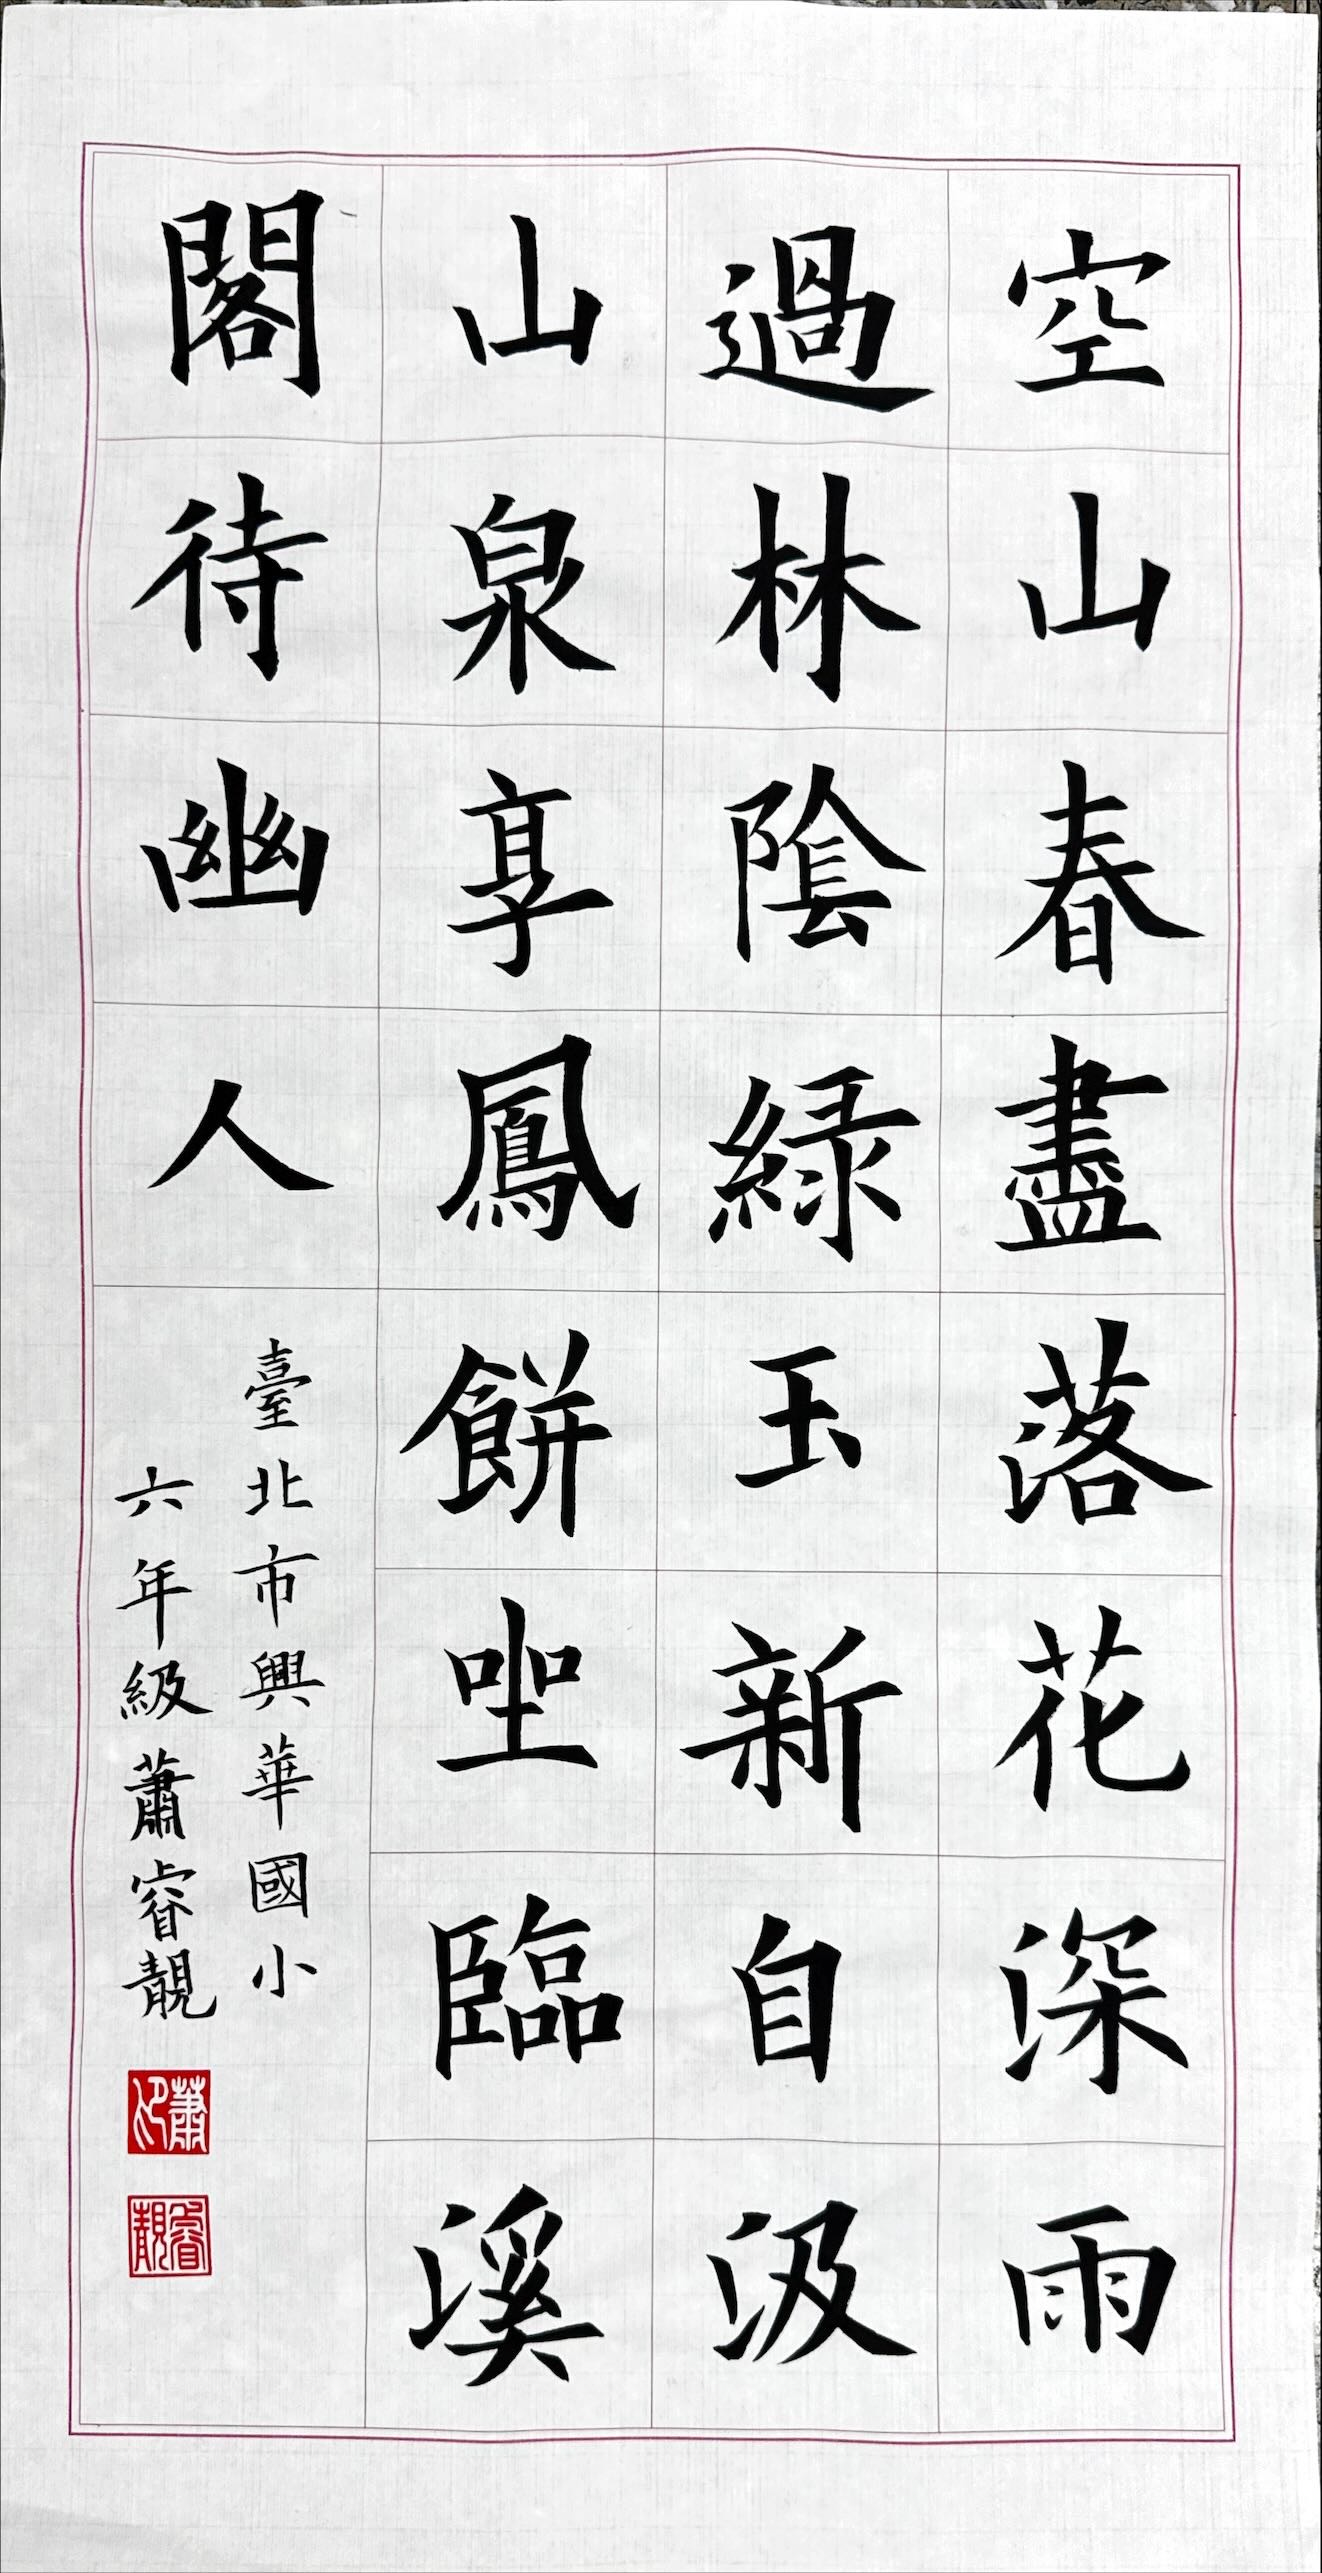 空山春盡落花深雨
過林陰綠玉新自汲
山泉享鳳餅坐臨溪
閣待幽人
臺北市興華國小
六年級蕭睿靚
蕭印
睿靚